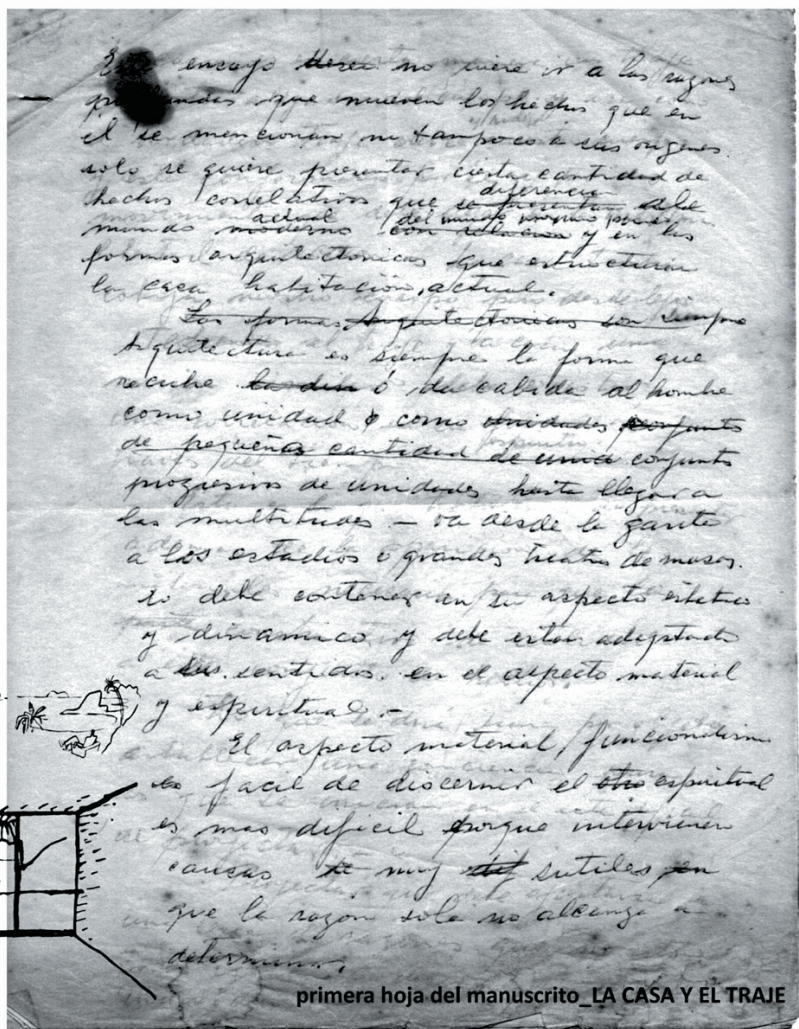 Este ensayo desea no quiere ir a las razones
profundas que mueven los hechos que en
el se mencionan ni tampoco a sus origenes.
solo se quiere presentar cierta cantidad de
hechos correlativos que se presentan
diferencian
mundo moderno con relacion y en las
actual del mundo
formas arquitectonicas que estructuran
la casa habitación actual.
Las formas Arquitectonicas son siempre
Arquitectura es siempre la forma que
recibe ó da cabida al hombre
como unidad o como unidades conjuntos
de pequeñas cantidad de unid conjuntos
progresivos de unidades hasta llegar a
las multitudes – va desde la garita
a los estadios o grandes teatros de masas.
lo debe contener en su aspecto estatico
y dinamico y debe estar adaptada
a sus sentidos. en el aspecto material
y espiritual.–
El aspecto material, funcionalismo
es facil de discernir el otro espiritual
es mas dificil porque intervienen
causas muy dif sutiles en
que la razon sola no alcanza a
determinar.
primera hoja del manuscrito_LA CASA Y EL TRAJE